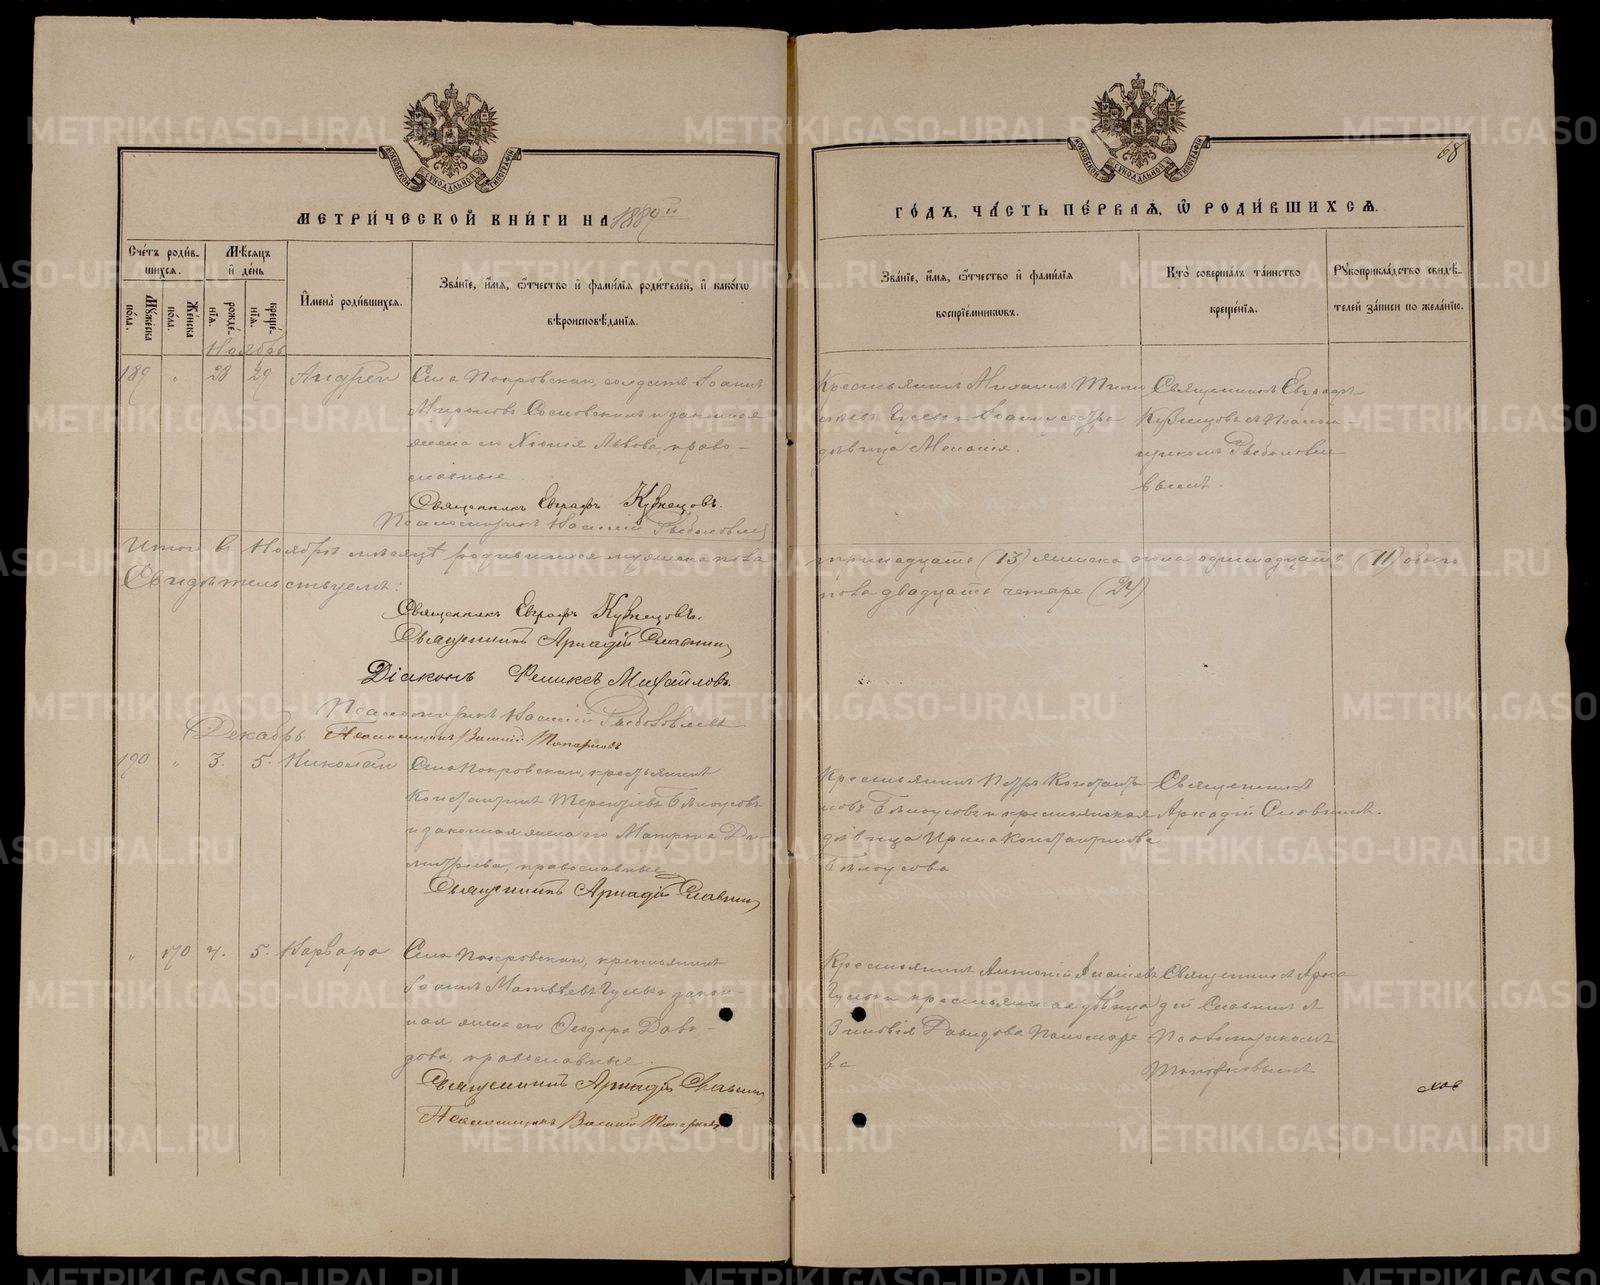 МЕТРИ́ЧЕСКОЙ КНИ́ГИ НА 1889й
ГО́ДЪ, ЧА́СТЬ ПЕ́РВАѦ, Ѡ҆ РОДИ́ВШИХСѦ.
68
Сче́тъ роди́в-
шихсѧ.
Мѣ́сѧцъ
и҆ де́нь
Мꙋ́жеска по́ла.
Же́нска по́ла.
рожде́-нїѧ.
креще́-нїѧ.
И҆мена̀ роди́вшихсѧ.
Зва́нїе, и҆́мѧ, ѻ҆́тчество и҆ фами́лїѧ роди́телей, и҆ како́гѡ
вѣроисповѣ́данїѧ.
Зва́нїе, и҆́мѧ, ѻ҆́тчество и҆ фами́лїѧ
воспрїе́мникѡвъ.
Кто̀ соверша́лъ та́инство
креще́нїѧ.
Рꙋкоприкла́дство свидѣ́-
телей за́писи по жела́нїю.
Ноябрь
189 " 28 29 Андрей
Села Покровскаго, солдатъ Іоаннъ
Мироновъ Сосновскихъ и законная
жена его Хіонія Львова, право-
славные.
Священникъ Евграфъ Кузнецовъ.
Псаломщикъ Василій
Крестьянинъ Михаилъ
Гусевъ и
дѣвица Меланія.
Священникъ Евграфъ
Кузнецовъ съ Псалом-
щикомъ
Итого въ Ноябрѣ мѣсяцѣ родившихся мужеска пола
тринадцать (13) женска пола одинадцать (11) обоего
пола двадцать четыре (24)
Свидѣтельствуемъ:
Священникъ Евграфъ Кузнецовъ.
Священникъ Аркадій Славнин
Діаконъ Феликсъ Михайловъ.
Псаломщикъ Василій
Псаломщикъ Василій Топорковъ
Декабрь
190 " 3. 5. Николай
Села Покровскаго, крестьянинъ
Константинъ Терентьевъ Бѣлоусовъ
и законная жена его Матрона Ди-
митріева, православные
Священникъ Аркадій Славнин
Крестьянинъ Петръ Констант-
новъ Бѣлоусовъ и крестьянская
дѣвица Ирина Константинова
Бѣлоусова
Священникъ
Аркадій Славнинъ.
" 170 4. 5. Варвара
Села Покровскаго, крестьянинъ
Іоаннъ Матвѣевъ Гусевъ и закон-
ная жена его Ѳеодора Дави-
дова, православные.
Священникъ Аркадій Славнин
Псаломщикъ Василій Топорковъ
Крестьянинъ Антоній
Гусевъ и крестьянская дѣвица
Зиновія Давидова Пономаре-
ва
Священникъ Арка-
дій Славнинъ съ
Псаломщикомъ
Топорковымъ
METRIKI.GASO-URAL.RU